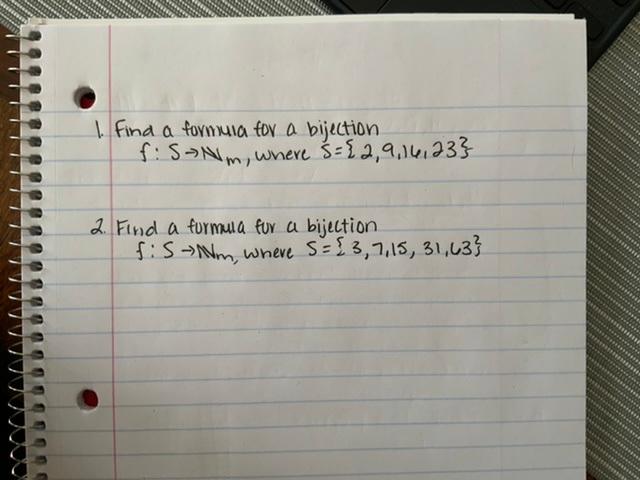 1. Find a formula for a bijection
f: S→ℕm, where S={2,9,16,23}
2. Find a formula for a bijection
f: S→ℕm, where S={3,7,15, 31,63}